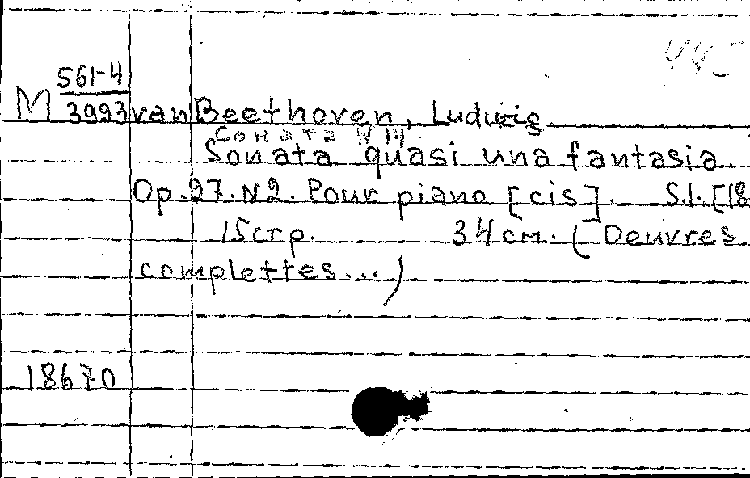 561-4
M 3993 van Beethoven, Ludwig.
Соната N 14
Sonata quasi una fantasia.
Op. 27. N2. Pour piano [cis]. S.l. [18
15 стр. 34 см. (Oeuvres
complettes...)
18670